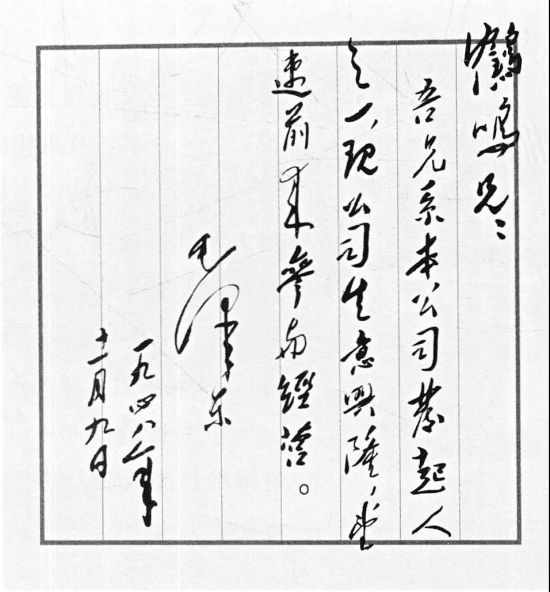 鶴鳴兄：
吾兄系本公司發起人
之一，現公司生意興隆，望
速前來參与經营。
毛澤东
一九四八年
十一月九日